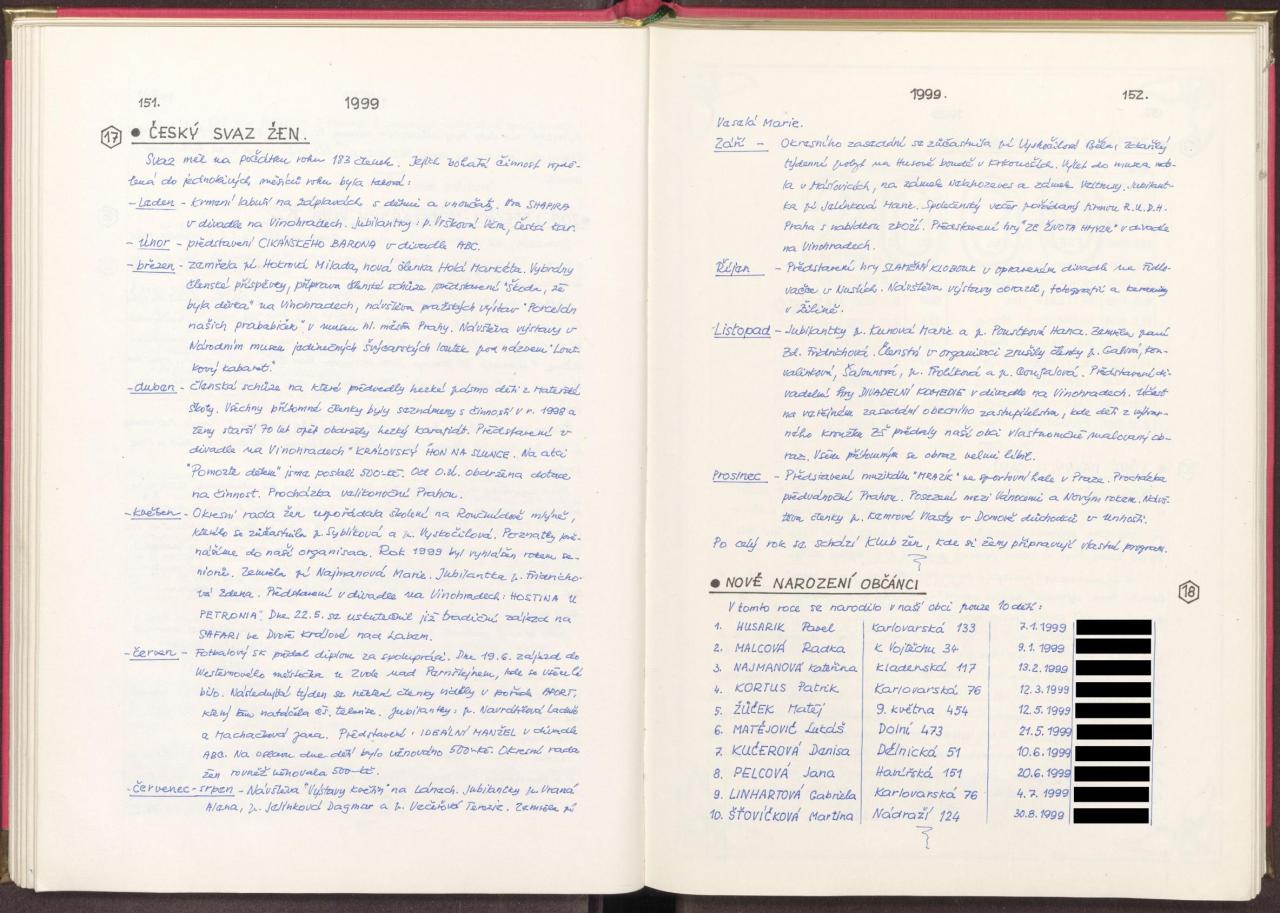 151.
1999
17 • ČESKÝ SVAZ ŽEN.
Svaz měl na počátku roku 183 členek. Jejich bohatá činnost rozdě-
lená do jednotlivých měsíců roku byla taková:
- Leden - Krmení labutí na záplavách s dětmi a vnoučaty. Hra SHAPIRA
v divadle na Vinohradech. Jubilantky: p. Vršková Věra, Česká Kar.
- Únor - představení CIKÁNSKÉHO BARONA v divadle ABC.
- březen - zemřela pí Hokrová Milada, nová členka Holá Markéta. Vybrány
členské příspěvky, příprava členské schůze, představení "Škoda, že
byla děvka" na Vinohradech, návštěva pražských výstav "Porcelán
našich prababiček" v museu hl. města Prahy. Návštěva výstavy v
Národním museu jedinečných švýcarských loutek pod názvem "Lout-
kový kabaret."
- duben - členská schůze na které předvedly hezké pásmo děti z Mateřské
školy. Všechny přítomné členky byly seznámeny s činností v r. 1998 a
ženy starší 70 let opět obdržely hezký karafiát. Představení v
divadle na Vinohradech "KRÁLOVSKÝ HON NA SLUNCE. Na akci
"Pomozte dětem" jsme poslali 500-Kč. Od O.Ú. obdržena dotace
na činnost. Procházka velikonoční Prahou.
- květen - Okresní rada žen uspořádala školení na Roučmídově mlýně,
kterého se zúčastnila p. Syblíková a p. Vyskočilová. Poznatky pře-
nášíme do naší organisace. Rok 1999 byl vyhlášen rokem se-
niorů. Zemřela pí Najmanová Marie. Jubilantka p. Fridricho-
vá Zdena. Představení v divadle na Vinohradech: HOSTINA U
PETRONIA". Dne 22.5. se uskutečnil již tradiční zájezd na
SAFARI ve Dvoře Králové nad Labem.
- červen - Fotbalový SK předal diplom za spolupráci. Dne 19.6. zájezd do
Westernového městečka u Zvole nad Pernštejnem, kde se všem lí-
bilo. Následující týden se některé členky viděly v pořadu APORT,
který tam natáčela čs. televize. Jubilantky: p. Navrátilová Ladně
a Machačková Jana. Představení: IDEÁLNÍ MANŽEL v divadle
ABC. Na oslavu dne dětí bylo věnováno 500-Kč. Okresní rada
žen rovněž věnovala 500-Kč.
- červenec-srpen - Návštěva "Výstavy květin" na Lánech. Jubilantky p. Vraná
Alena, p. Jelínková Dagmar a p. Večeřová Terezie. Zemřela pí
1999.
152.
Veselá Marie.
Září - Okresního zasedání se zúčastnila pí Vyskočilová Běla. Lékařský
týdenní pobyt na Husově boudě v Krkonoších. Výlet do muzea met-
la v Máslovicích, na zámek Nelahozeves a zámek Veltrusy. Jubilant-
ka pí Jelínková Marie. Společenský večer pořádaný firmou R.U.D.H.
Praha s nabídkou zboží. Představení hry "ZE ŽIVOTA HMYZU" v divadle
na Vinohradech.
Říjen - Představení hry SLAMĚNÝ KLOBOUK v opraveném divadle na Fidlo-
vačce v Nuslích. Návštěva výstavy obrazů, fotografií a keramiky
v Žilině.
- Listopad - Jubilantky p. Kunová Marie a p. Poustková Hana. Zemřela paní
Zd. Fridrichová. Členství v organisaci zrušily členky p. Galivá, Kon-
valinková, Šalounová, p. Frolíková a p. Coufalová. Představení di-
vadelní hry DIVADELNÍ KOMEDIE v divadle na Vinohradech. Účast
na veřejném zasedání obecního zastupitelstva, kde děti z výtvar-
ného kroužku ZŠ předaly naší obci vlastnoručně malovaný ob-
raz. Všem přítomným se obraz velmi líbil.
Prosinec - Představení muzikálu "MRAZÍK" ve sportovní hale v Praze. Procházka
předvánoční Prahou. Posezení mezi Vánocemi a Novým rokem. Návš-
těva členky p. Kamrové Vlasty v Domově důchodců v Unhošti.
Po celý rok se schází Klub žen, kde si ženy připravují vlastní program.
• NOVĚ NAROZENÍ OBČÁNCI 18
V tomto roce se narodilo v naší obci pouze 10 dětí:
1. HUSARIK Pavel Karlovarská 133 7.1.1999
2. MALCOVÁ Radka K Vojtěchu 34 9.1.1999
3. NAJMANOVÁ Kateřina Kladenská 117 13.2.1999
4. KORTUS Patrik Karlovarská 76 12.3.1999
5. ŽŮČEK Matěj 9. května 454 12.5.1999
6. MATĚJOVIČ Lukáš Dolní 473 21.5.1999
7. KUČEROVÁ Denisa Dělnická 51 10.6.1999
8. PELCOVÁ Jana Havířská 151 20.6.1999
9. LINHARTOVÁ Gabriela Karlovarská 76 4.7.1999
10. ŠŤOVÍČKOVÁ Martina Nádraží 124 30.8.1999